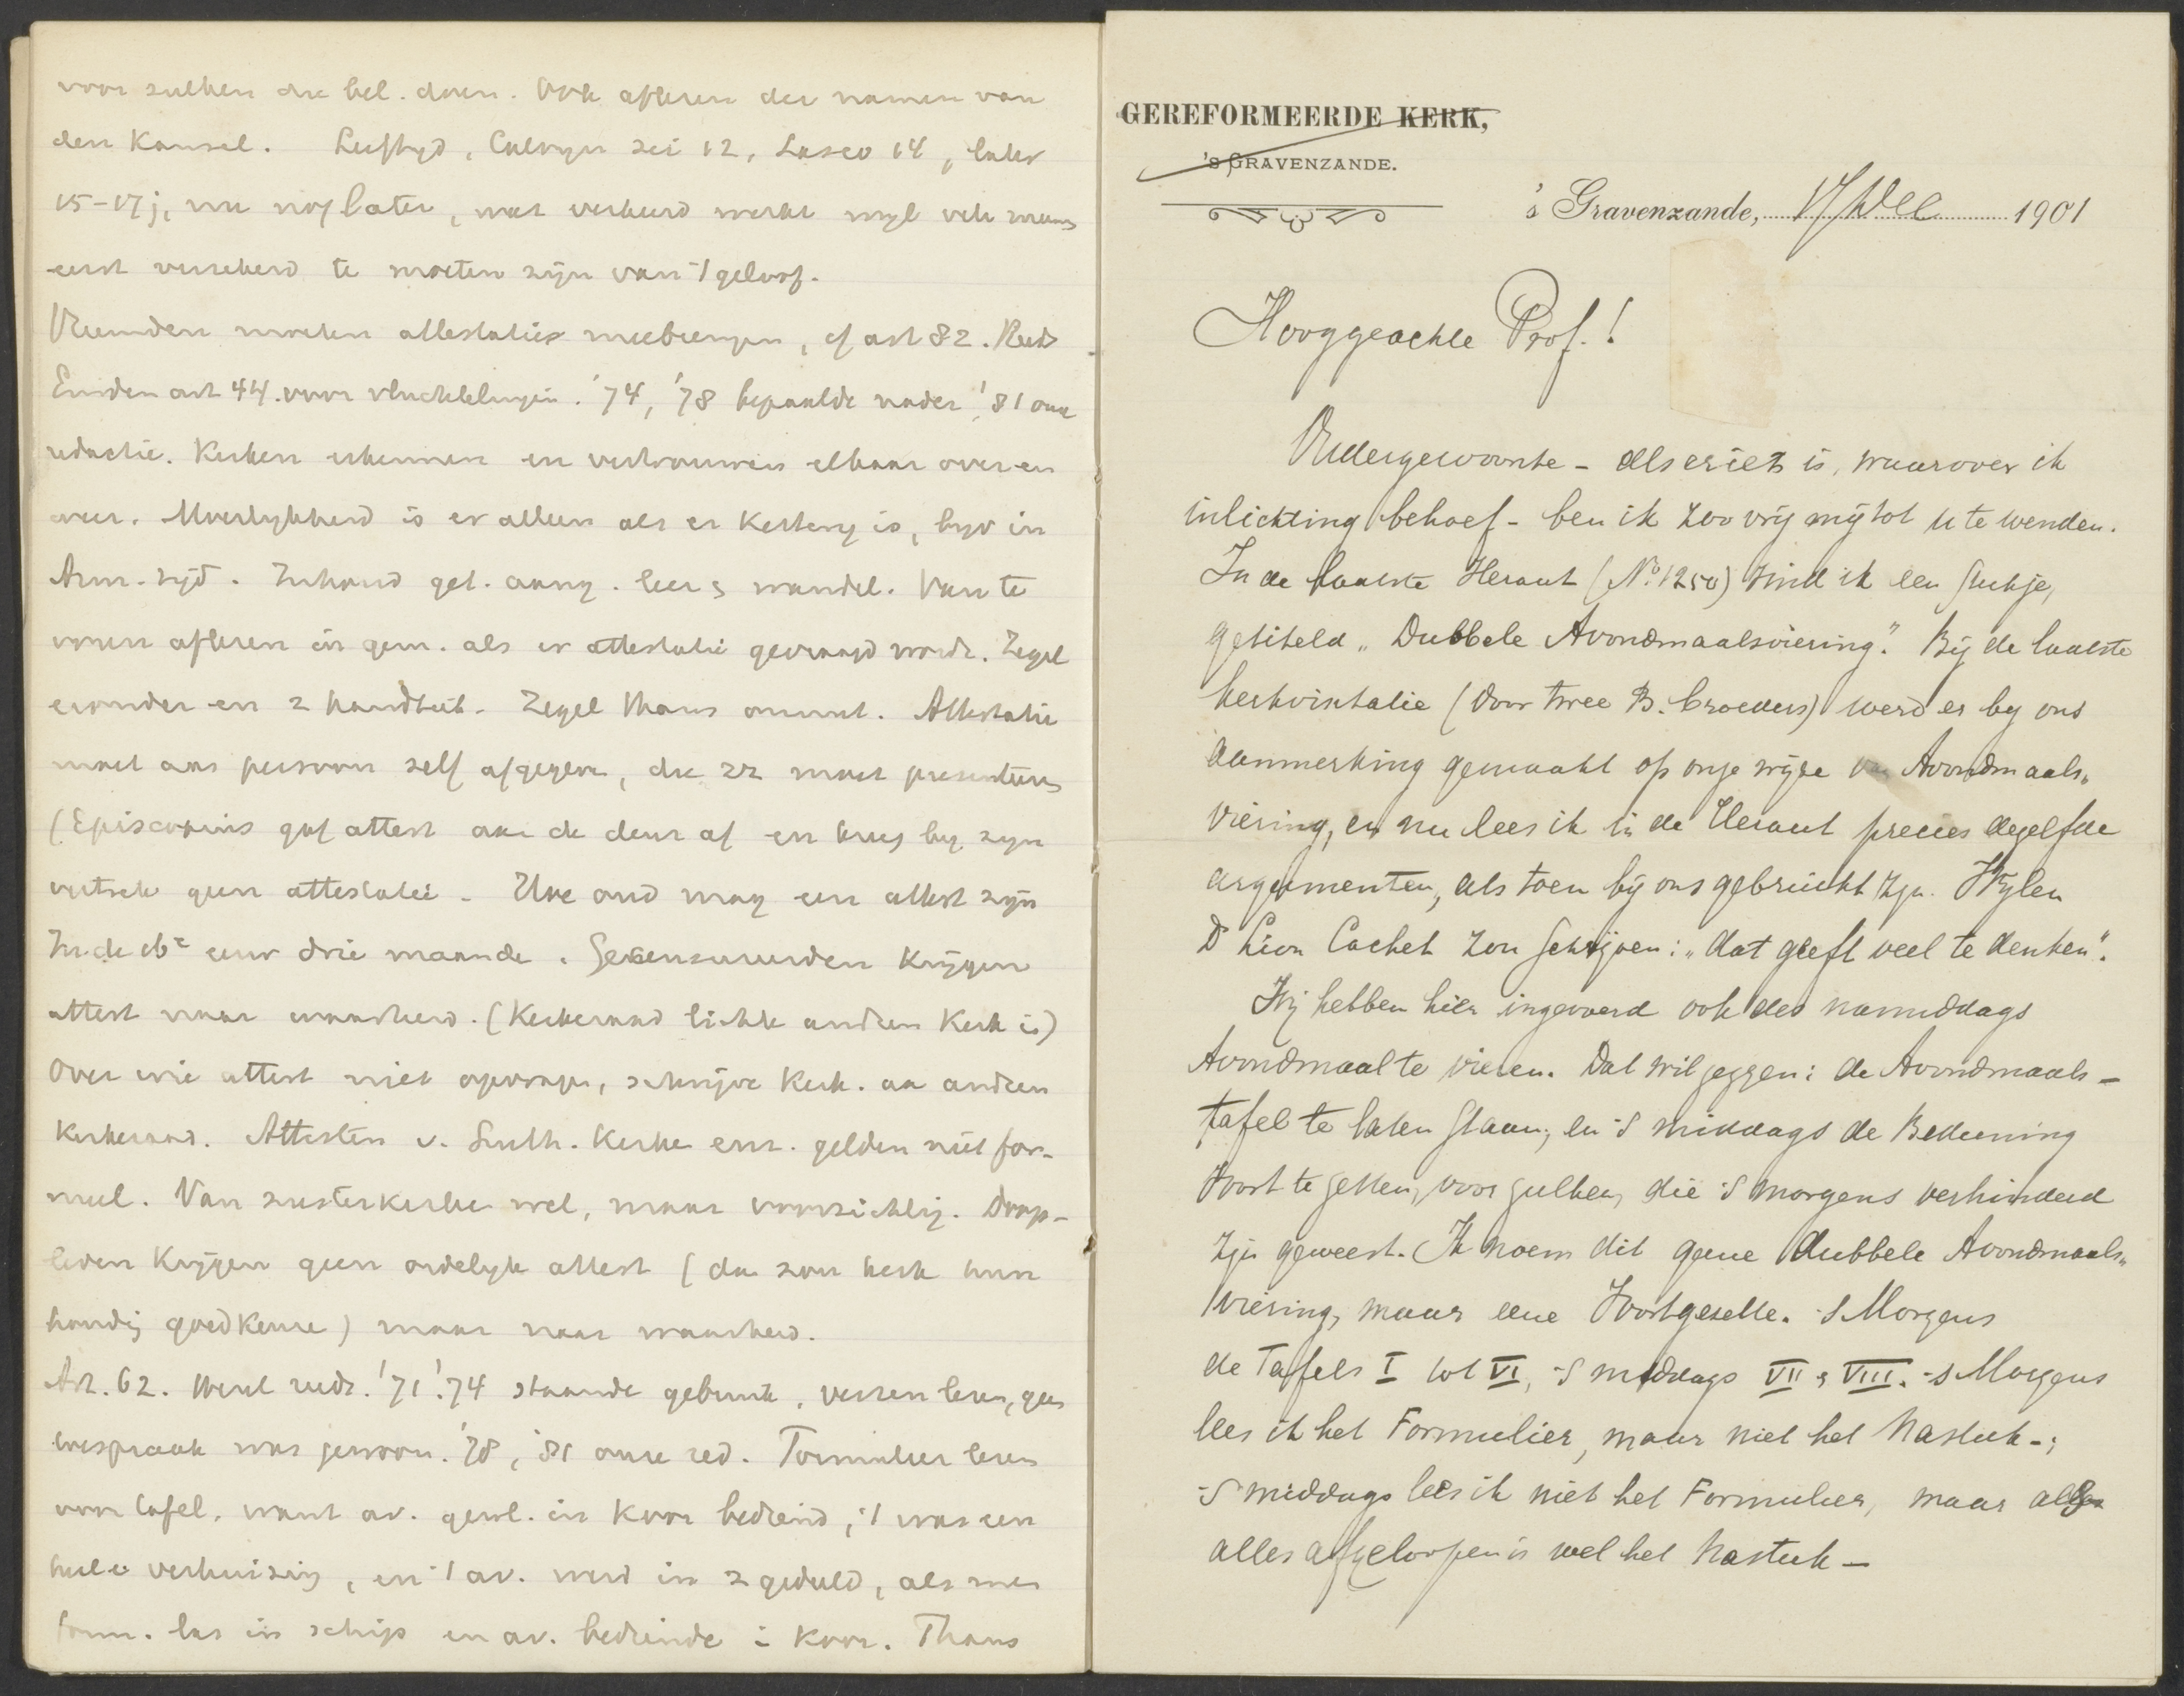 voor zulken die bel. doen. Ook aflezen der namen van
den Kansel. Leeftyd, Calvyn zei 12, Lasco 14, later
15-17 j, nu nog later, wat verkeerd werkt wyl vele meenen
eerst verzekerd te moeten zijn van 't geloof.
Vreemden moeten attestaties meebrengen, cf art 82. Reeds
Emden art 44. voor vluchtelingen. '74, '78 bepaalde nader, '81 onze
redactie. Kerken erkennen en vertrouwen elkaar over en
weer. Moeilykheid is er alleen als er Kettery is, byv in
Arm. tijd. Inhoud get. aang. leer & wandel. Van te
voren aflezen in gem. als er attestatie gevraagd wordt. Zegel
eronder en 2 handteek. Zegel thans onnut. Attestatie
moet aan persoon zelf afgegeven, die ze moet presenteeren
(Episcopius gaf attest aan de deur af en kreeg by zyn
vertrek geen attestatie. Hoe oud mag een attest zijn
In de 16e eeuw drie maande. Gecensureerden Krijgen
attest naar waarheid. (Kerkeraad lichte andren Kerk in)
Over wie attest niet opvragen, schrijve Kerk. aan andren
Kerkeraad. Attesten v. Luth. Kerke enz. gelden niet for-
meel. Van zusterkerke wel, maar voorzichtig. Doop-
leden Krijgen geen ordelyk attest (dan zou kerk hun
houding goedkeure) maar naar waarheid.
Art. 62. Wezel reeds. '71 '74 staande gebruik, verzen lezen, geen
toespraak was gewoon. '78, '81 onze red. Formulier lezen
voor tafel, want av. gewl. in Koor bediend, 't was een
heele verhuizing, en 't av. werd in 2 gedeeld, als men
form. las in schip en av. bediende in Koor. Thans
GEREFORMEERDE KERK,
's GRAVENZANDE.
's Gravenzande, 17 Dec 1901
Hooggeachte Prof.!
Oudergewoonte - als er iets is, waarover ik
inlichting behoef - ben ik zoo vrij mij tot U te wenden.
In de laatste Heraut (No. 1250) vind ik een stukje,
getiteld „Dubbele Avondmaalsviering". Bij de laatste
kerkvisitatie (door twee B. broeders) werd er by ons
aanmerking gemaakt op onze wijze van Avondmaals„
viering, en nu lees ik in de Heraut precies dezelfde
argumenten, als toen bij ons gebruikt zijn. Wijlen
Dr Lion Cachet zou schrijven: „dat geeft veel te denken".
Wij hebben hier ingevoerd ook des namiddags
Avondmaal te vieren. Dat wil zeggen: de Avondmaals-
tafel te laten staan, en 's middags de Bediening
voort te zetten, voor zulken, die 's morgens verhinderd
zijn geweest. Ik noem dit geene dubbele Avondmaals„
viering, maar eene Voortgezette. 's Morgens
de Tafels I tot VI, 's middags VII & VIII. 's Morgens
lees ik het Formulier, maar niet het Nastuk-;
's middags lees ik niet het Formulier, maar als
alles afgeloopen is wel het Nastuk-